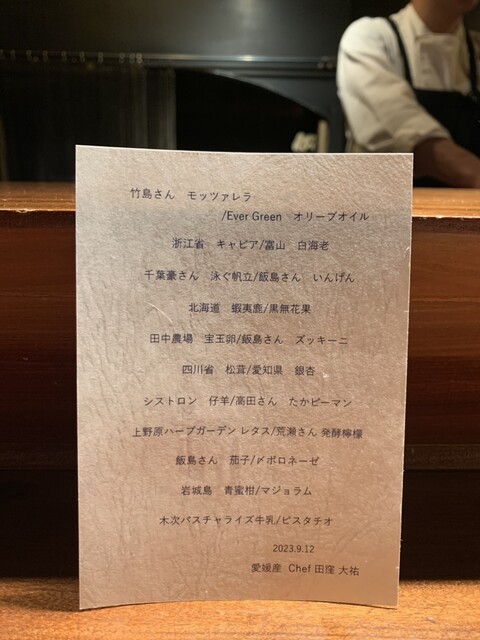 竹島さん　モッツァレラ
/Ever Green　オリーブオイル
浙江省　キャビア/富山　白海老
千葉豪さん　泳ぐ帆立/飯島さん　いんげん
北海道　蝦夷鹿/黒無花果
田中農場　宝玉卵/飯島さん　ズッキーニ
四川省　松茸/愛知県　銀杏
シストロン　仔羊/高田さん　たかピーマン
上野原ハーブガーデン レタス/荒瀬さん 発酵檸檬
飯島さん　茄子/〆ボロネーゼ
岩城島　青蜜柑/マジョラム
木次パスチャライズ牛乳/ピスタチオ
2023.9.12
愛媛産　Chef 田窪 大祐